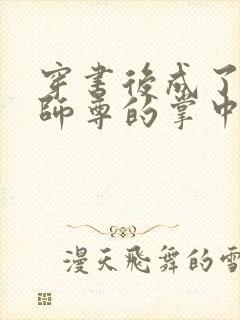 穿書後成了
師尊的掌中
漫天飛舞的雪